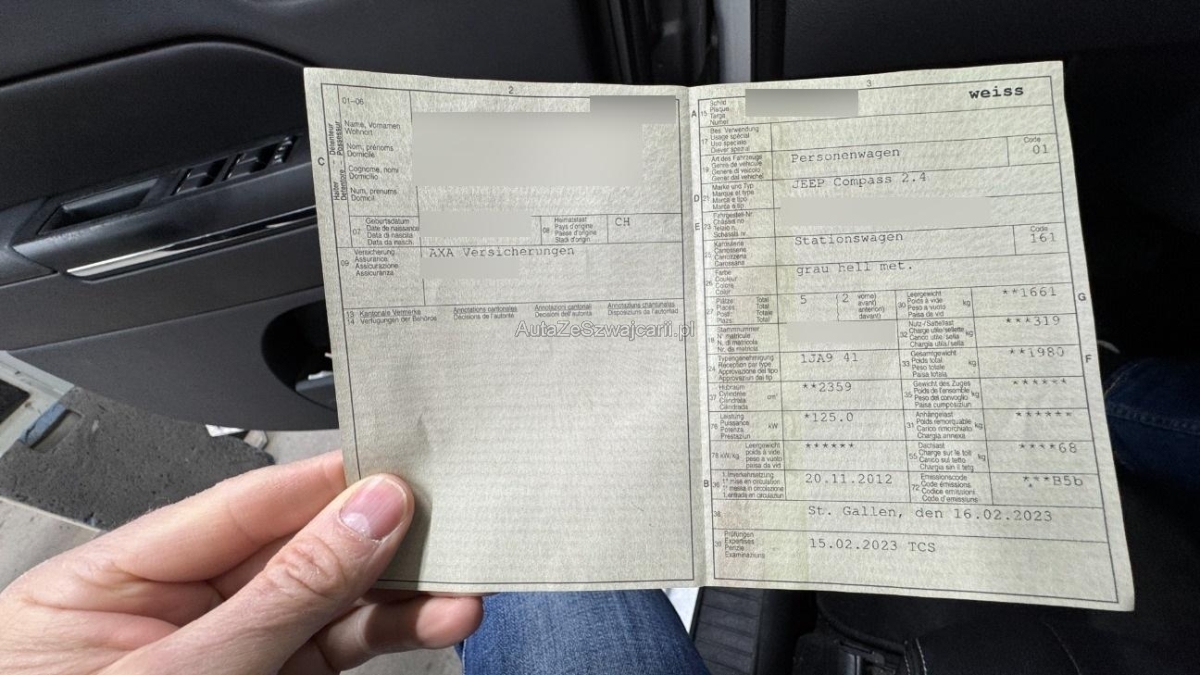 2
01–06
C
Halter - Détenteur
Detentore - Possessur
Name, Vornamen
Wohnort
Nom, prénoms
Domicile
Cognome, nomi
Domicilio
Num, prenums
Domicil
07
Geburtsdatum
Date de naissance
Data di nascita
Data da nasch.
08
Heimatstaat
Pays d'origine
Paese d'origine
Stadi d'origin
CH
09
Versicherung
Assurance
Assicurazione
Assicuranza
AXA Versicherungen
13
14
Kantonale Vermerke
Verfügungen der Behörde
Annotations cantonales
Décisions de l'autorité
Annotazioni cantonali
Decisioni dell'autorità
Annotaziuns chantunalas
Disposiziuns da l'autoritad
AutaZeSzwajcarii.pl
3
weiss
A
15
Schild
Plaque
Targa
Numer
17
Bes. Verwendung
Usage spécial
Uso speciale
Diever spezial
19
Art des Fahrzeugs
Genre de véhicule
Genere di veicolo
Gener dal vehichel
Personenwagen
Code
01
D
21
Marke und Typ
Marque et type
Marca e tipo
Marca e tip
JEEP Compass 2.4
E
23
Fahrgestell-Nr.
Châssis no
Telaio n.
Schassis nr.
25
Karosserie
Carrosserie
Carrozzeria
Carossaria
Stationswagen
Code
161
26
Farbe
Couleur
Colore
Color
grau hell met.
27
Plätze: Total
Places: Total
Posti: Totale
Plazs: Total
5
(2
vorne)
avant)
anteriori)
davant)
30
Leergewicht
Poids à vide
Peso a vuoto
Paisa da vid
kg
**1661
G
18
Stammnummer
N° matricule
N. di matricola
Nr. da matricla
32
Nutz-/Sattellast
Charge utile/sellette
Carico utile/sella
Chargia utila/sella
kg
***319
24
Typengenehmigung
Réception par type
Approvazione del tipo
Approvaziun dal tip
1JA9 41
33
Gesamtgewicht
Poids total
Peso totale
Paisa totala
kg
**1980
F
37
Hubraum
Cylindrée
Cilindrata
Cilindrada
cm³
**2359
35
Gewicht des Zuges
Poids de l'ensemble
Peso del convoglio
Paisa cumposiziun
kg
******
76
Leistung
Puissance
Potenza
Prestaziun
kW
*125.0
31
Anhängelast
Poids remorquable
Carico rimorchiato
Chargia annexa
kg
******
78
kW/kg
Leergewicht
poids à vide
peso a vuoto
paisa da vid
******
55
Dachlast
Charge sur le toit
Carico sul tetto
Chargia sin il tetg
kg
****68
B
36
1. Inverkehrsetzung
1re mise en circulation
1a messa in circolazione
1. entrada en circulaziun
20.11.2012
72
Emissionscode
Code émissions
Codice emissioni
Code d'emissiuns
***B5b
38
St. Gallen, den 16.02.2023
39
Prüfungen
Expertises
Perizie
Examinaziuns
15.02.2023 TCS